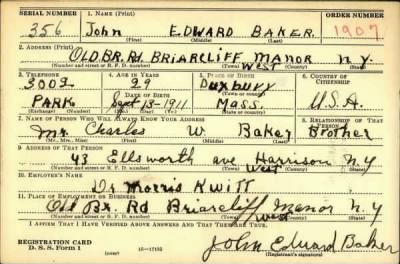 SERIAL NUMBER 1. NAME (Print) ORDER NUMBER
356 John EDWARD BAKER. 1907
(First) (Middle) (Last)
2. ADDRESS (Print)
OLD. BR. Rd BRIARCLIFF MANOR N.Y.
WEST
(Number and street or R. F. D. number) (Town) (County) (State)
3. TELEPHONE 4. AGE IN YEARS 5. PLACE OF BIRTH 6. COUNTRY OF CITIZENSHIP
3003 29 Duxbury
(Town or county)
PARK Sept 13-1911 MASS. U.S.A.
(Exchange) (Number) (Mo.) (Day) (Yr.) (State or country)
7. NAME OF PERSON WHO WILL ALWAYS KNOW YOUR ADDRESS 8. RELATIONSHIP OF THAT PERSON
Mr. Charles W. Baker Brother
(Mr., Mrs., Miss) (First) (Middle) (Last)
9. ADDRESS OF THAT PERSON
43 Ellsworth ave Harrison N.Y
West
(Number and street or R. F. D. number) (Town) (County) (State)
10. EMPLOYER'S NAME
Dr Morris Kwitt
11. PLACE OF EMPLOYMENT OR BUSINESS
Old Br. Rd Briarcliff Manor N.Y
West
(Number and street or R. F. D. number) (Town) (County) (State)
I AFFIRM THAT I HAVE VERIFIED ABOVE ANSWERS AND THAT THEY ARE TRUE.
REGISTRATION CARD
D. S. S. Form 1 (over) 16-17105 John Edward Baker
(Registrant's signature)